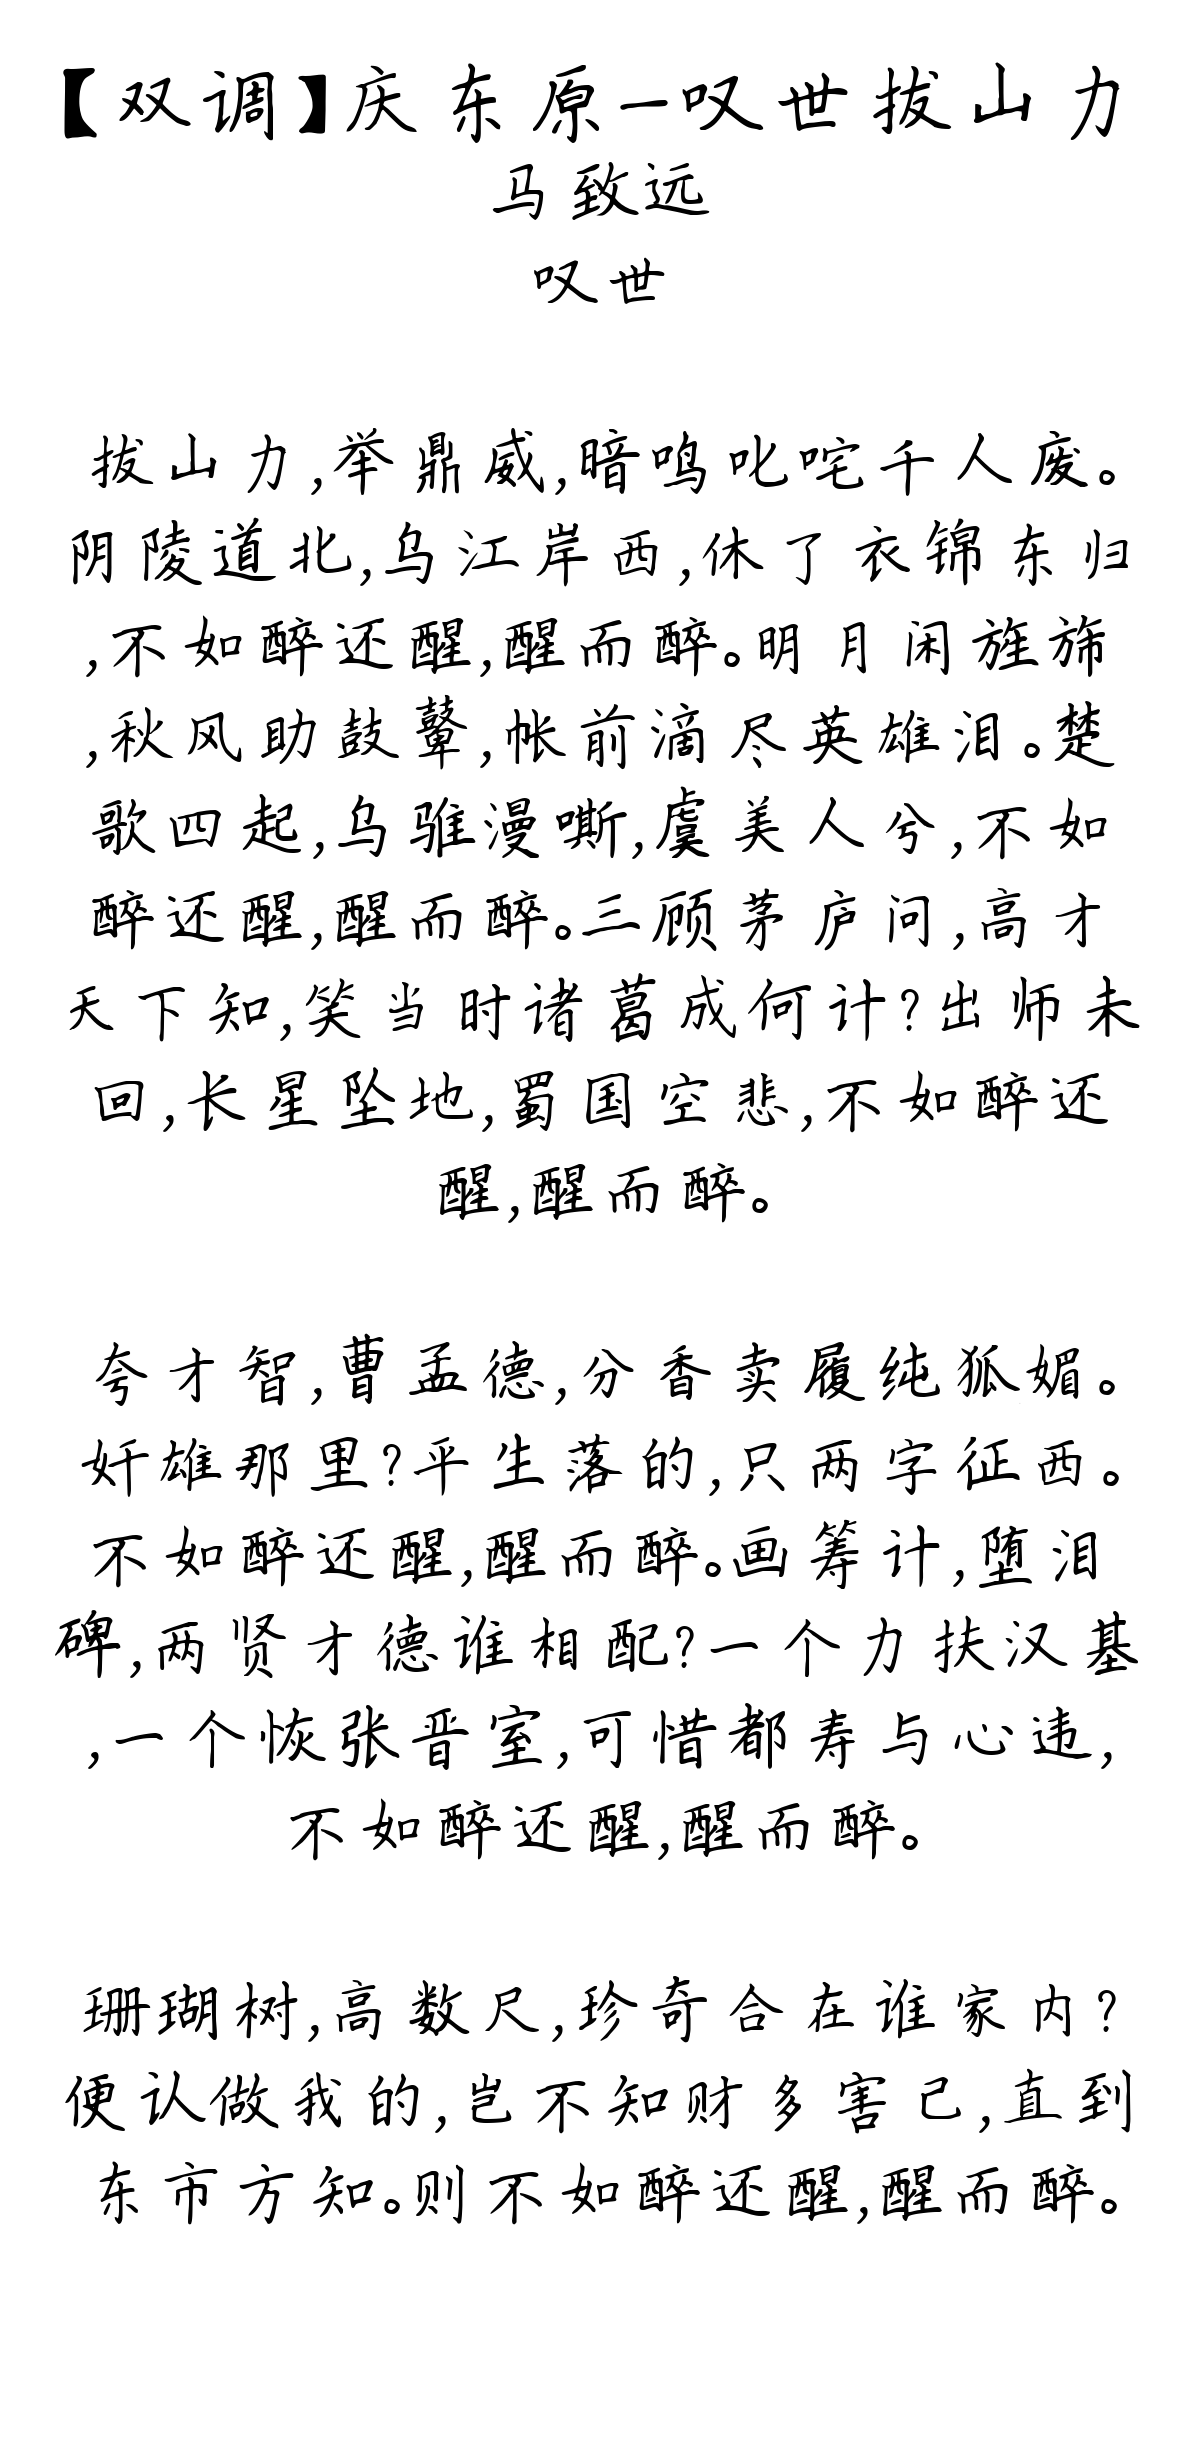 【双调】庆东原-叹世拔山力
马致远
叹世
拔山力,举鼎威,暗鸣叱咤千人废。
阴陵道北,乌江岸西,休了衣锦东归
,不如醉还醒,醒而醉。明月闲旌旆
,秋风助鼓鼙,帐前滴尽英雄泪。楚
歌四起,乌骓漫嘶,虞美人兮,不如
醉还醒,醒而醉。三顾茅庐问,高才
天下知,笑当时诸葛成何计?出师未
回,长星坠地,蜀国空悲,不如醉还
醒,醒而醉。
夸才智,曹孟德,分香卖履纯狐媚。
奸雄那里?平生落的,只两字征西。
不如醉还醒,醒而醉。画筹计,堕泪
碑,两贤才德谁相配?一个力扶汉基
,一个恢张晋室,可惜都寿与心违,
不如醉还醒,醒而醉。
珊瑚树,高数尺,珍奇合在谁家内?
便认做我的,岂不知财多害己,直到
东市方知。则不如醉还醒,醒而醉。